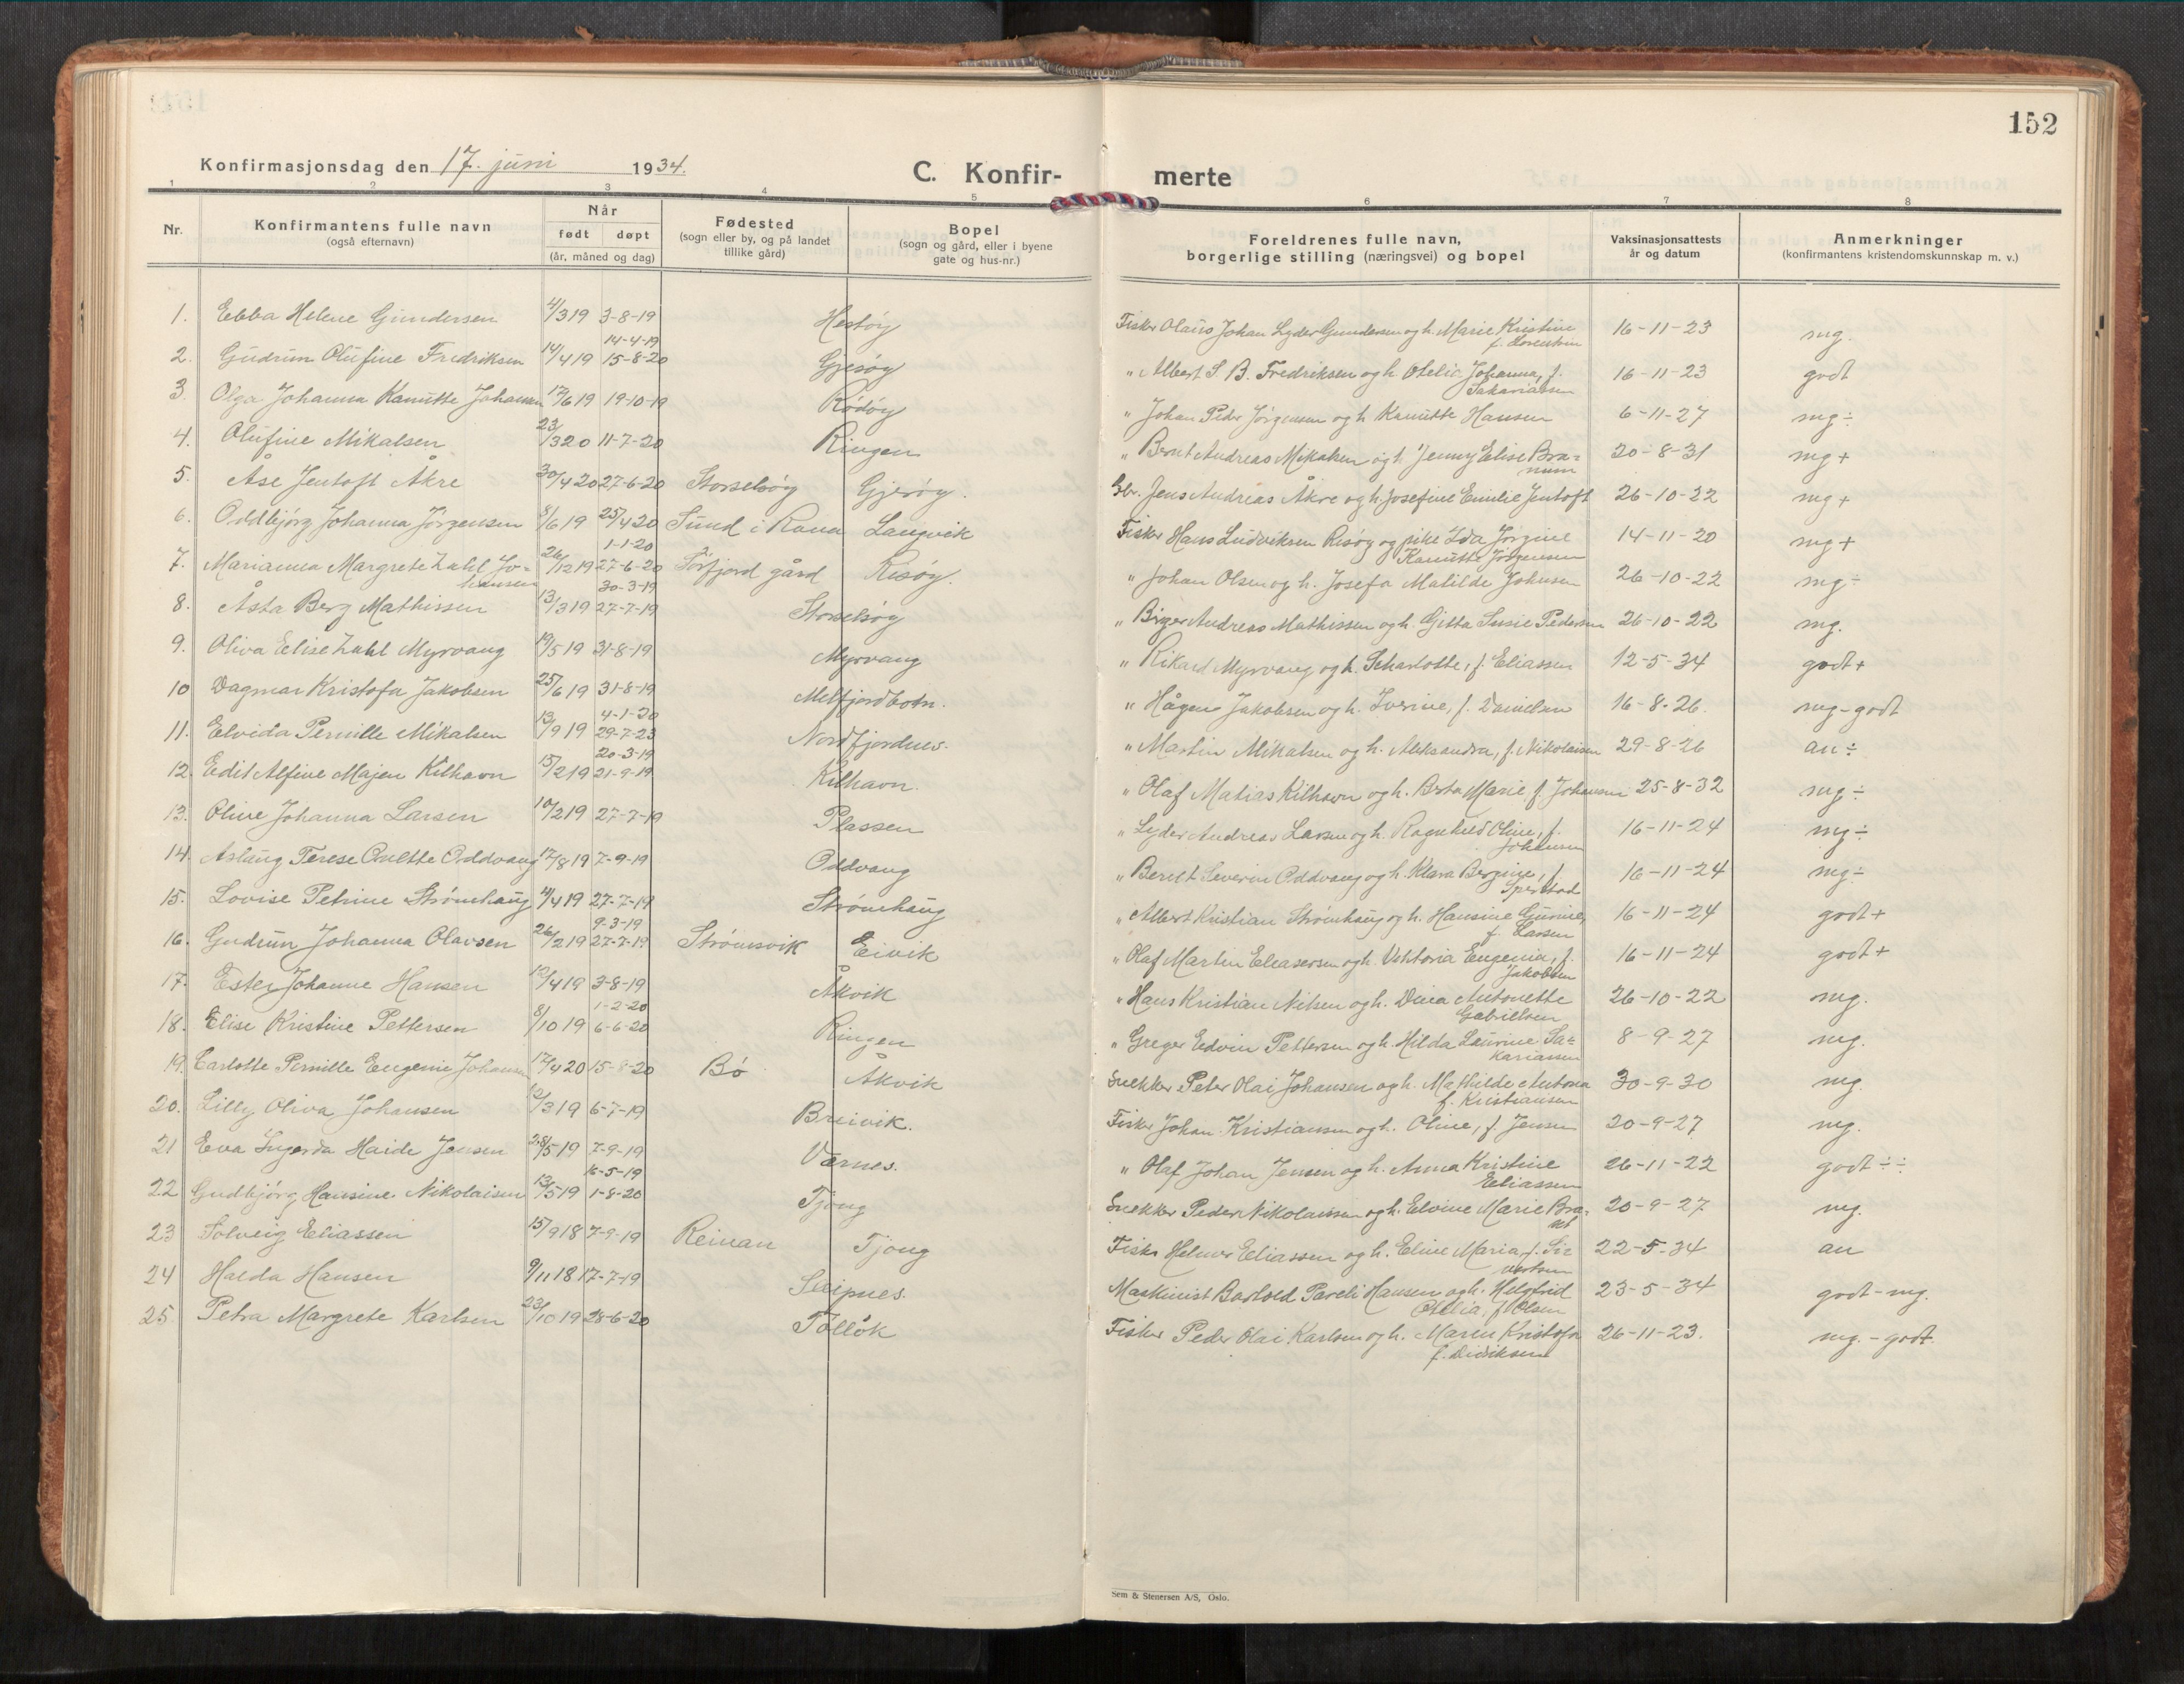 152
Konfirmasjonsdag den 17. juni 1934.
C. Konfir- merte
1 2 3 4 5 6 7 8
Nr. Konfirmantens fulle navn (også efternavn) Når født døpt (år, måned og dag) Fødested (sogn eller by, og på landet tillike gård) Bopel (sogn og gård, eller i byene gate og hus-nr.) Foreldrenes fulle navn, borgerlige stilling (næringsvei) og bopel Vaksinasjonsattests år og datum Anmerkninger (konfirmantens kristendomskunnskap m. v.)
1. Ebba Helene Gundersen 4/3 19 3-8-19 Hestøy Fisker Olaus Johan Lyder Gundersen og h. Marie Kristine f. 16-11-23 mg.
2. Gudrun Olufine Fredriksen 14/4 19 14-4-19 15-8-20 Gjerøy " Albert S. B. Fredriksen og h. Otelia Johanna, f. Sakariassen 16-11-23 godt
3. Olga Johanna Kanutte Johansen 17/6 19 19-10-19 Rödöy " Johan Peder Jörgensen og h Kanutte Hansen 6-11-27 mg÷
4. Olufine Mikalsen 23/3 20 11-7-20 Ringen " Bernt Andreas Mikalsen og h. Jenny Elise Bra=num 20-8-31 mg+
5. Åse Jentoft Åkre 30/4 20 27-6-20 Storselsöy Gjeröy. Gbr. Jens Andreas Åkre og h. Josefine Emilie Jentoft 26-10-22 mg+
6. Oddbjörg Johanna Jörgensen 8/6 19 25/4 20 Sund i Rana Langvik Fisker Hans Ludviksen Risöy og pike Ida Jörgine Kanutte Jörgensen 14-11-20 mg+
7. Marianna Margrete Zahl Jo-hansen 26/12 19 1-1-20 27-6-20 Sörfjord gård Risöy. " Johan Olsen og h. Josefa Matilde Johnsen 26-10-22 mg÷
8. Åsta Berg Mathissen 13/3 19 30-3-19 27-7-19 Storselsöy " Birger Andreas Mathissen og h. Gitta Susie Pedersen 26-10-22 mg.
9. Oliva Elise Zahl Myrvang 19/5 19 31-8-19 Myrvang " Rikard Myrvang og h. Scharlotte, f. Eliassen 12-5-34 godt+
10 Dagmar Kristofa Jakobsen 25/6 19 31-8-19 Melfjordbotn. " Hågen Jakobsen og h. Iverine, f. Danielsen 16-8-26. mg-godt
11. Elvida Pernille Mikalsen 13/9 19 4-1-20 29-7-23 Nordfjordnes. " Martin Mikalsen og h. Aleksandra, f. Nikolaisen 29-8-26 an÷
12. Edit Alfine Majen Kilhavn 15/2 19 20-3-19 21-9-19 Kilhavn. " Olaf Matias Kilhavn og h. Berta Marie f. Johansen 25-8-32 mg÷
13. Oline Johanna Larsen 10/2 19 27-7-19 Plassen " Lyder Andreas Larsen og h. Ragnhild Oline, f. Johansen 16-11-24 mg÷
14. Aslaug Terese Oddvang 17/8 19 7-9-19 Oddvang " Bernt Severin Oddvang og h. Klara Bergine, f. Sperstad 16-11-24 mg÷
15. Lovise Petrine Strömhaug 4/4 19 27-7-19 Strömhaug " Albert Kristian Strömhaug og h. Hansine Gurine, f. Larsen 16-11-24 godt+
16. Gudrun Johanna Olavsen 26/2 19 9-3-19 27-7-19 Strömsvik Eivik " Olaf Martin Eleasersen og h. Viktoria Eugenia, f. Jakobsen 16-11-24 godt+
17. Ester Johanne Hansen 12/4 19 3-8-19 Åkvik " Hans Kristian Nilsen og h. Dina Antonette Gabrielsen 26-10-22 mg.
18. Elise Kristine Pettersen 8/10 19 1-2-20 6-6-20 Ringen " Greger Edvin Pettersen og h. Hilda Laurine Sa=kariassen 8-9-27 mg.
19. Carlotte Pernille Eugenie Johansen 17/4 20 15-8-20 Bö Åkvik Snekker Peter Olai Johansen og h. Mathilde Antona f. Kristiansen 30-9-30 mg.
20. Lilly Oliva Johansen 12/3 19 6-7-19 Breivik. Fisker Johan Kristiansen og h. Oline, f. Jensen 20-9-27 mg.
21 Eva Ingerda Haide Jensen 28/5 19 7-9-19 Værnes. " Olaf Johan Jensen og h. Anna Kristine Eliassen 26-11-22 godt÷÷
22 Gudbjörg Hansine Nikolaisen 13/5 19 16-5-19 1-8-20 Tjong Snekker Peder Nikolaissen og h. Elvine Marie 20-9-27 mg.
23 Solveig Eliassen 15/9 18 7-9-19 Reinan Tjong Fisker Helmer Eliassen og h. Eline Maria f. Si=vertsen 22-5-34 an
24 Halda Hansen 9/11 18 17-7-19 Selpnes. Maskinist Bartold Pareli Hansen og h. Helgfrid Otelia, f. Olsen 23-5-34 godt-mg.
25. Petra Margrete Karlsen 23/10 19 28-6-20 Tollök Fisker Peder Olai Karlsen og h. Maren Kristofa f. Didriksen 26-11-23. mg.-godt.
Sem & Stenersen A/S, Oslo.